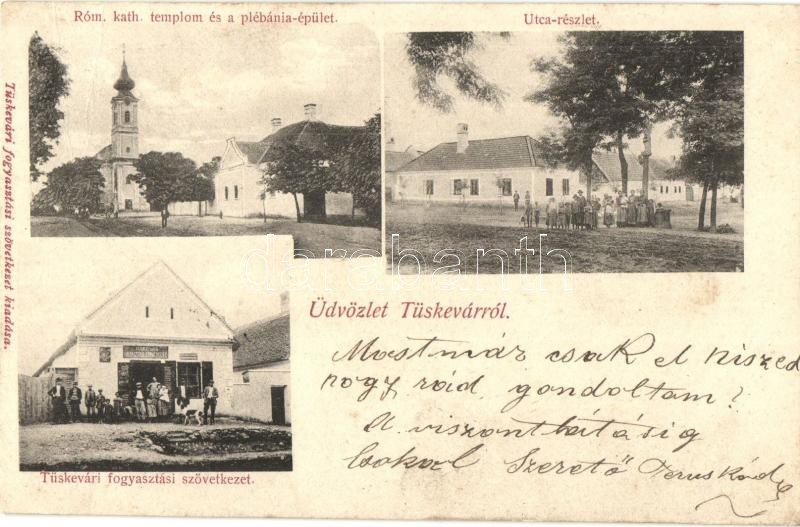 Róm. kath. templom és a plébánia-épület.
Utca-részlet.
Tüskevári fogyasztási szövetkezet kiadása.
darabanth
Üdvözlet Tüskevárról.
Mostmár csak el hiszed
hogy rád gondoltam?
A viszontlátásig
csokol Szerető
Tüskevári fogyasztási szövetkezet.